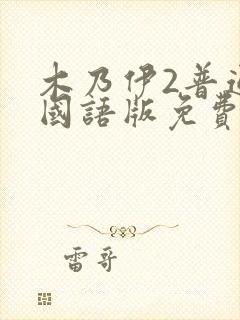 木乃伊2普通
國語版免費
雷哥